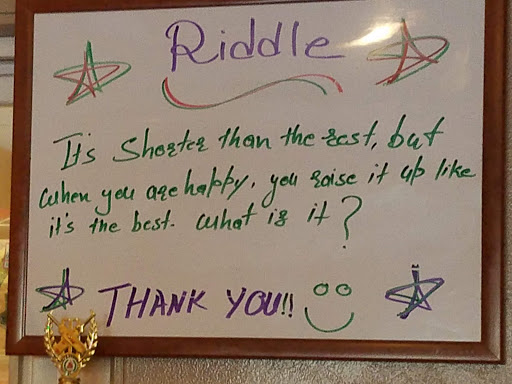 Riddle
It's Shorter than the rest, but
when you are happy, you raise it up like
it's the best. What is it?
THANK YOU!!